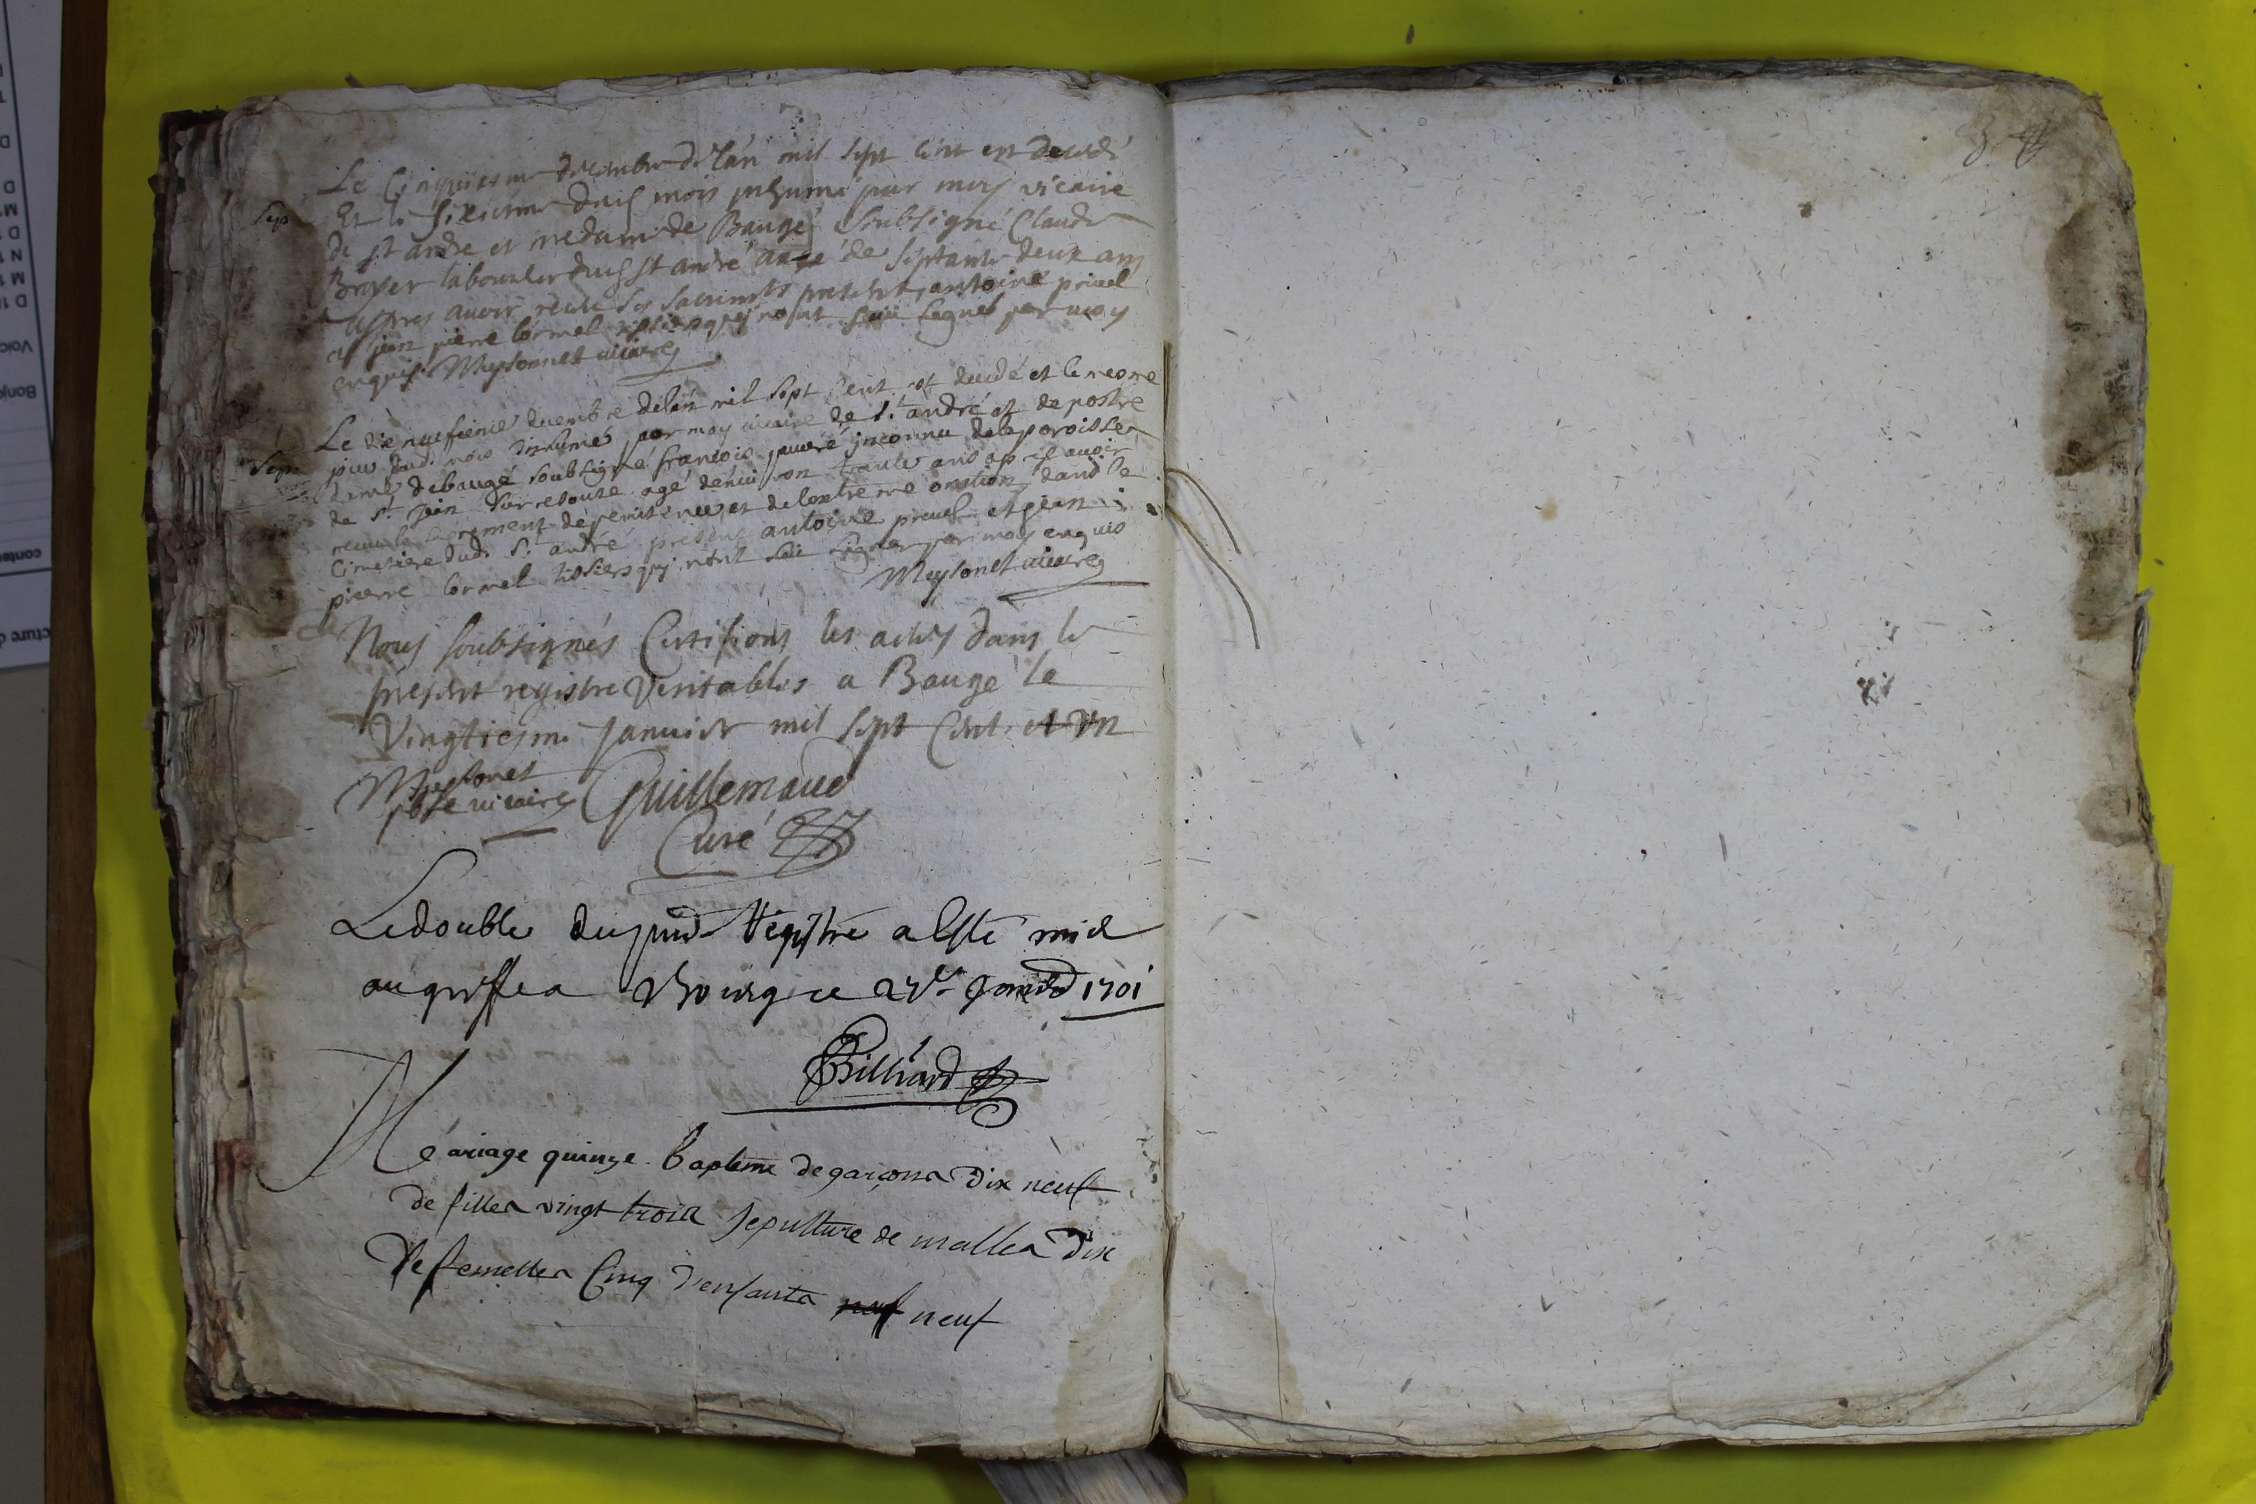 Le Cinquiesme decembre de l'an mil sept cent est decedé
Sep. Et le sixiesme dud mois inhumé par moy vicaire
de st andre et nre dame de Baugé soubsigné Claude
Broyer laboureur dud st andré aagé de septante deux ans
apres avoir receu les sacrements present antoine
et jean pierre Cormel tissiers qui nont sceu signer par moy
enquis. Meysonnet vicaire
Le dienuefieme decembre de lan mil sept cent est decedé et le mesme
jour dud. mois inhumé par moy vicaire de st. andré et de nostre
Sep. dame debaugé soubsigné francois pauvre inconnu dela paroisse
de st. jean sur resouze agé denviron trante ans apres avoir
receu le sacrement de penitence et de lextreme onction dans le
Cimetiere dud. st. andré present antoine et jean
pierre Cormel tissiers qui nont sceu signer par moy enquis
Meysonet vicaire
Nous soubsignés Certifions les actes dans le
present registre veritables a Baugé le
Vingtiesme Janvier mil sept Cent et vn
Meysonet
pbre vicaire Guillemaud
Curé
Le double du pnt Regystre a esté mis
au greffe a Bourg ce Janvier 1701
Billiard
Mariage quinze. baptême de garçons dix neuf
de filles vingt trois sepulture de malles dix
de femelles Cinq d'enfants neuf neuf